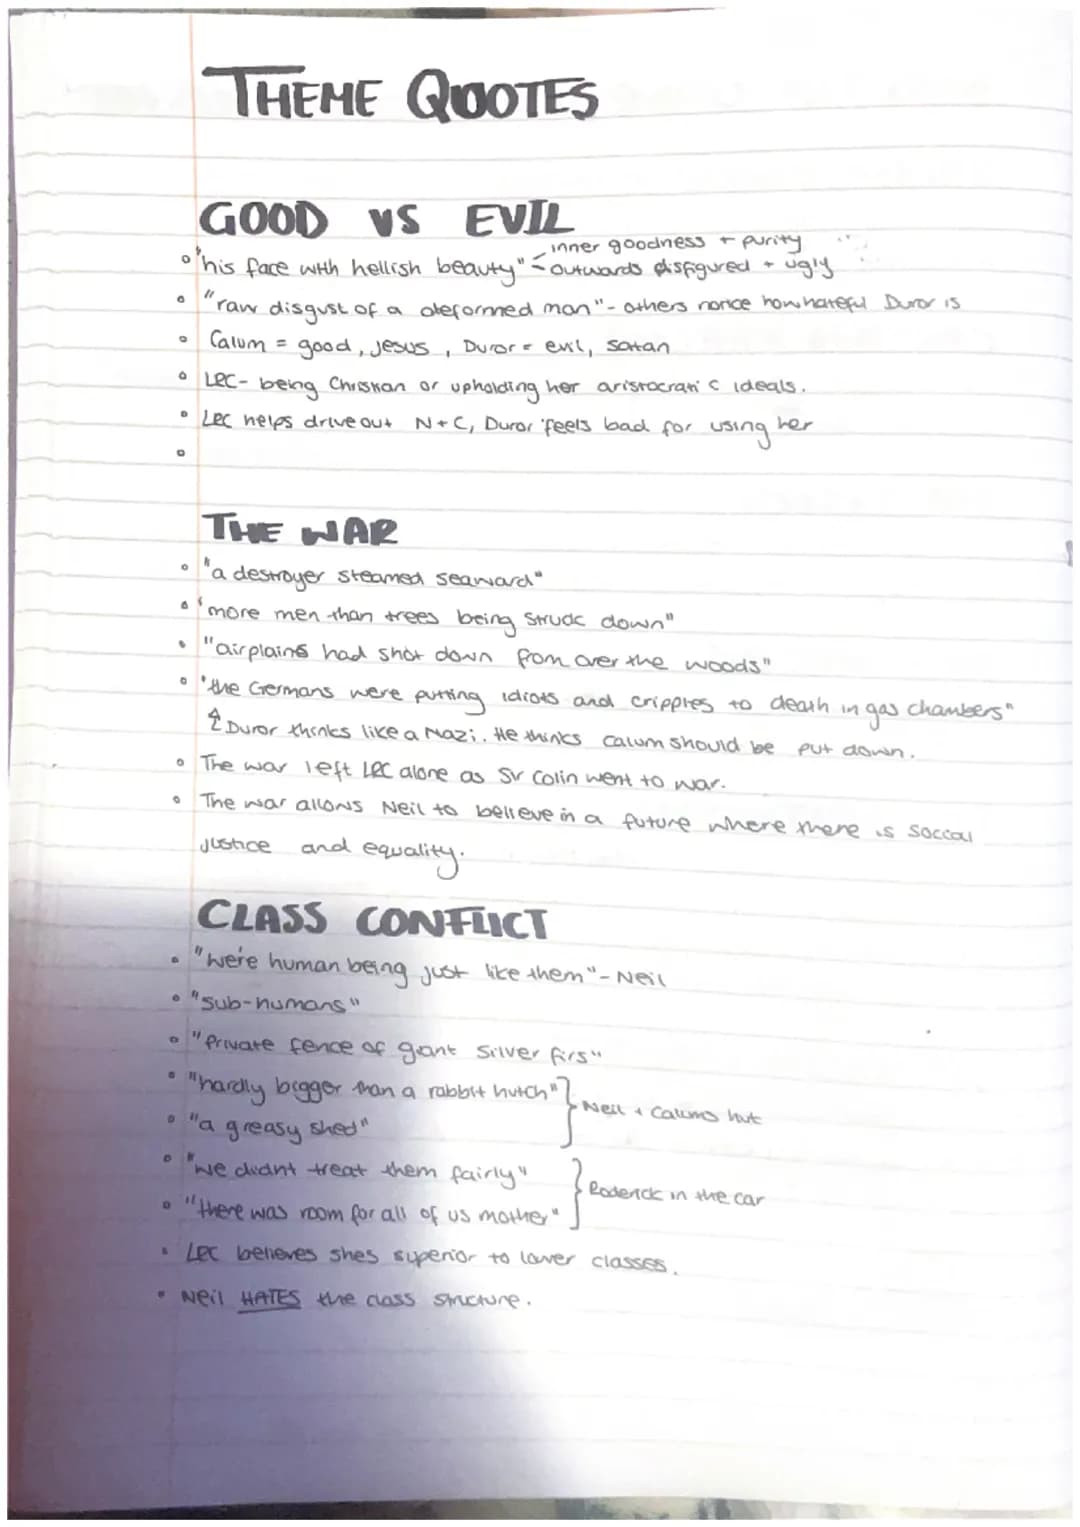 THEME QUOTES
GOOD VS EVIL
inner goodness + purity
"his face with hellish beauty" < outwards disfigured + ugly
"raw disgust of a deformed man" - others notice how hateful Duror is
Calum = good, Jesus, Duror = evil, Satan
LRC - being Christian or upholding her aristocratic ideals.
LRC helps drive out N+C, Duror feels bad for using her
THE WAR
"a destroyer steamed seaward"
"more men than trees being struck down"
"airplains had shot down from over the woods"
"the Germans were putting idiots and cripples to death in gas chambers"
Duror thinks like a Nazi. He thinks calum should be put down.
The war left LRC alone as Sir Colin went to war.
The war allows Neil to believe in a future where there is social
justice and equality.
CLASS CONFLICT
"We're human being just like them" - Neil
"sub-humans"
"Private fence of giant silver firs"
"hardly bigger than a rabbit hutch"
Neil + Calums hut
"a greasy shed"
"we didnt treat them fairly"
Roderick in the car
"there was room for all of us mother"
LRC believes shes superior to lower classes.
Neil HATES the class structure.